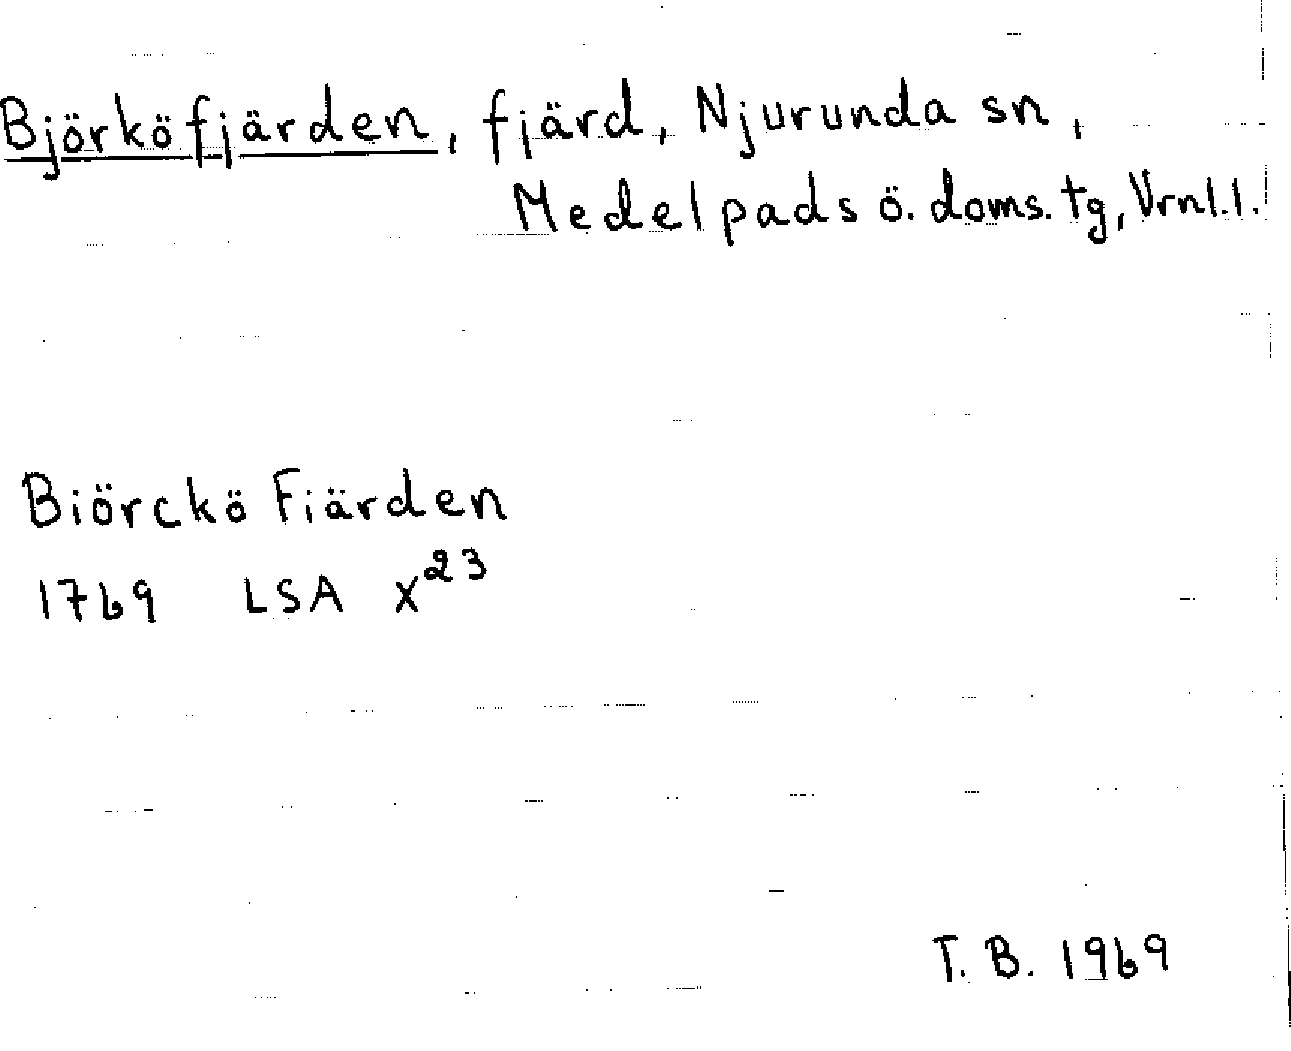 Björköfjärden, fjärd, Njurunda sn,
Medelpads ö. doms. tg, Vrnl. l.
Biörckö Fiärden
1769 LSA X²³
T. B. 1969